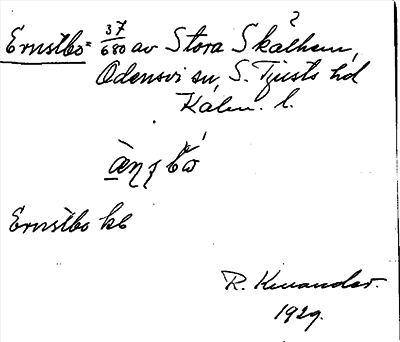 Ernstbo = 37/680 av Stora Skälhem,
Odensvi sn, S. Tjusts hd
Kalm. l.
Ernstbo kb
R. Kinander.
1929.